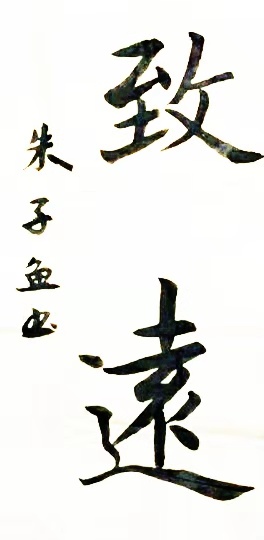 致遠
朱子鱼书